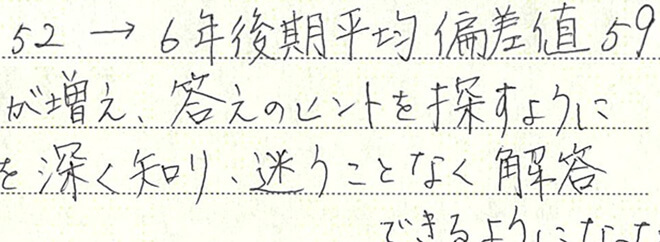 52 → 6年後期平均 偏差値 59
が増え、答えのヒントを探すように
を深く知り、迷うことなく解答
できるようになった